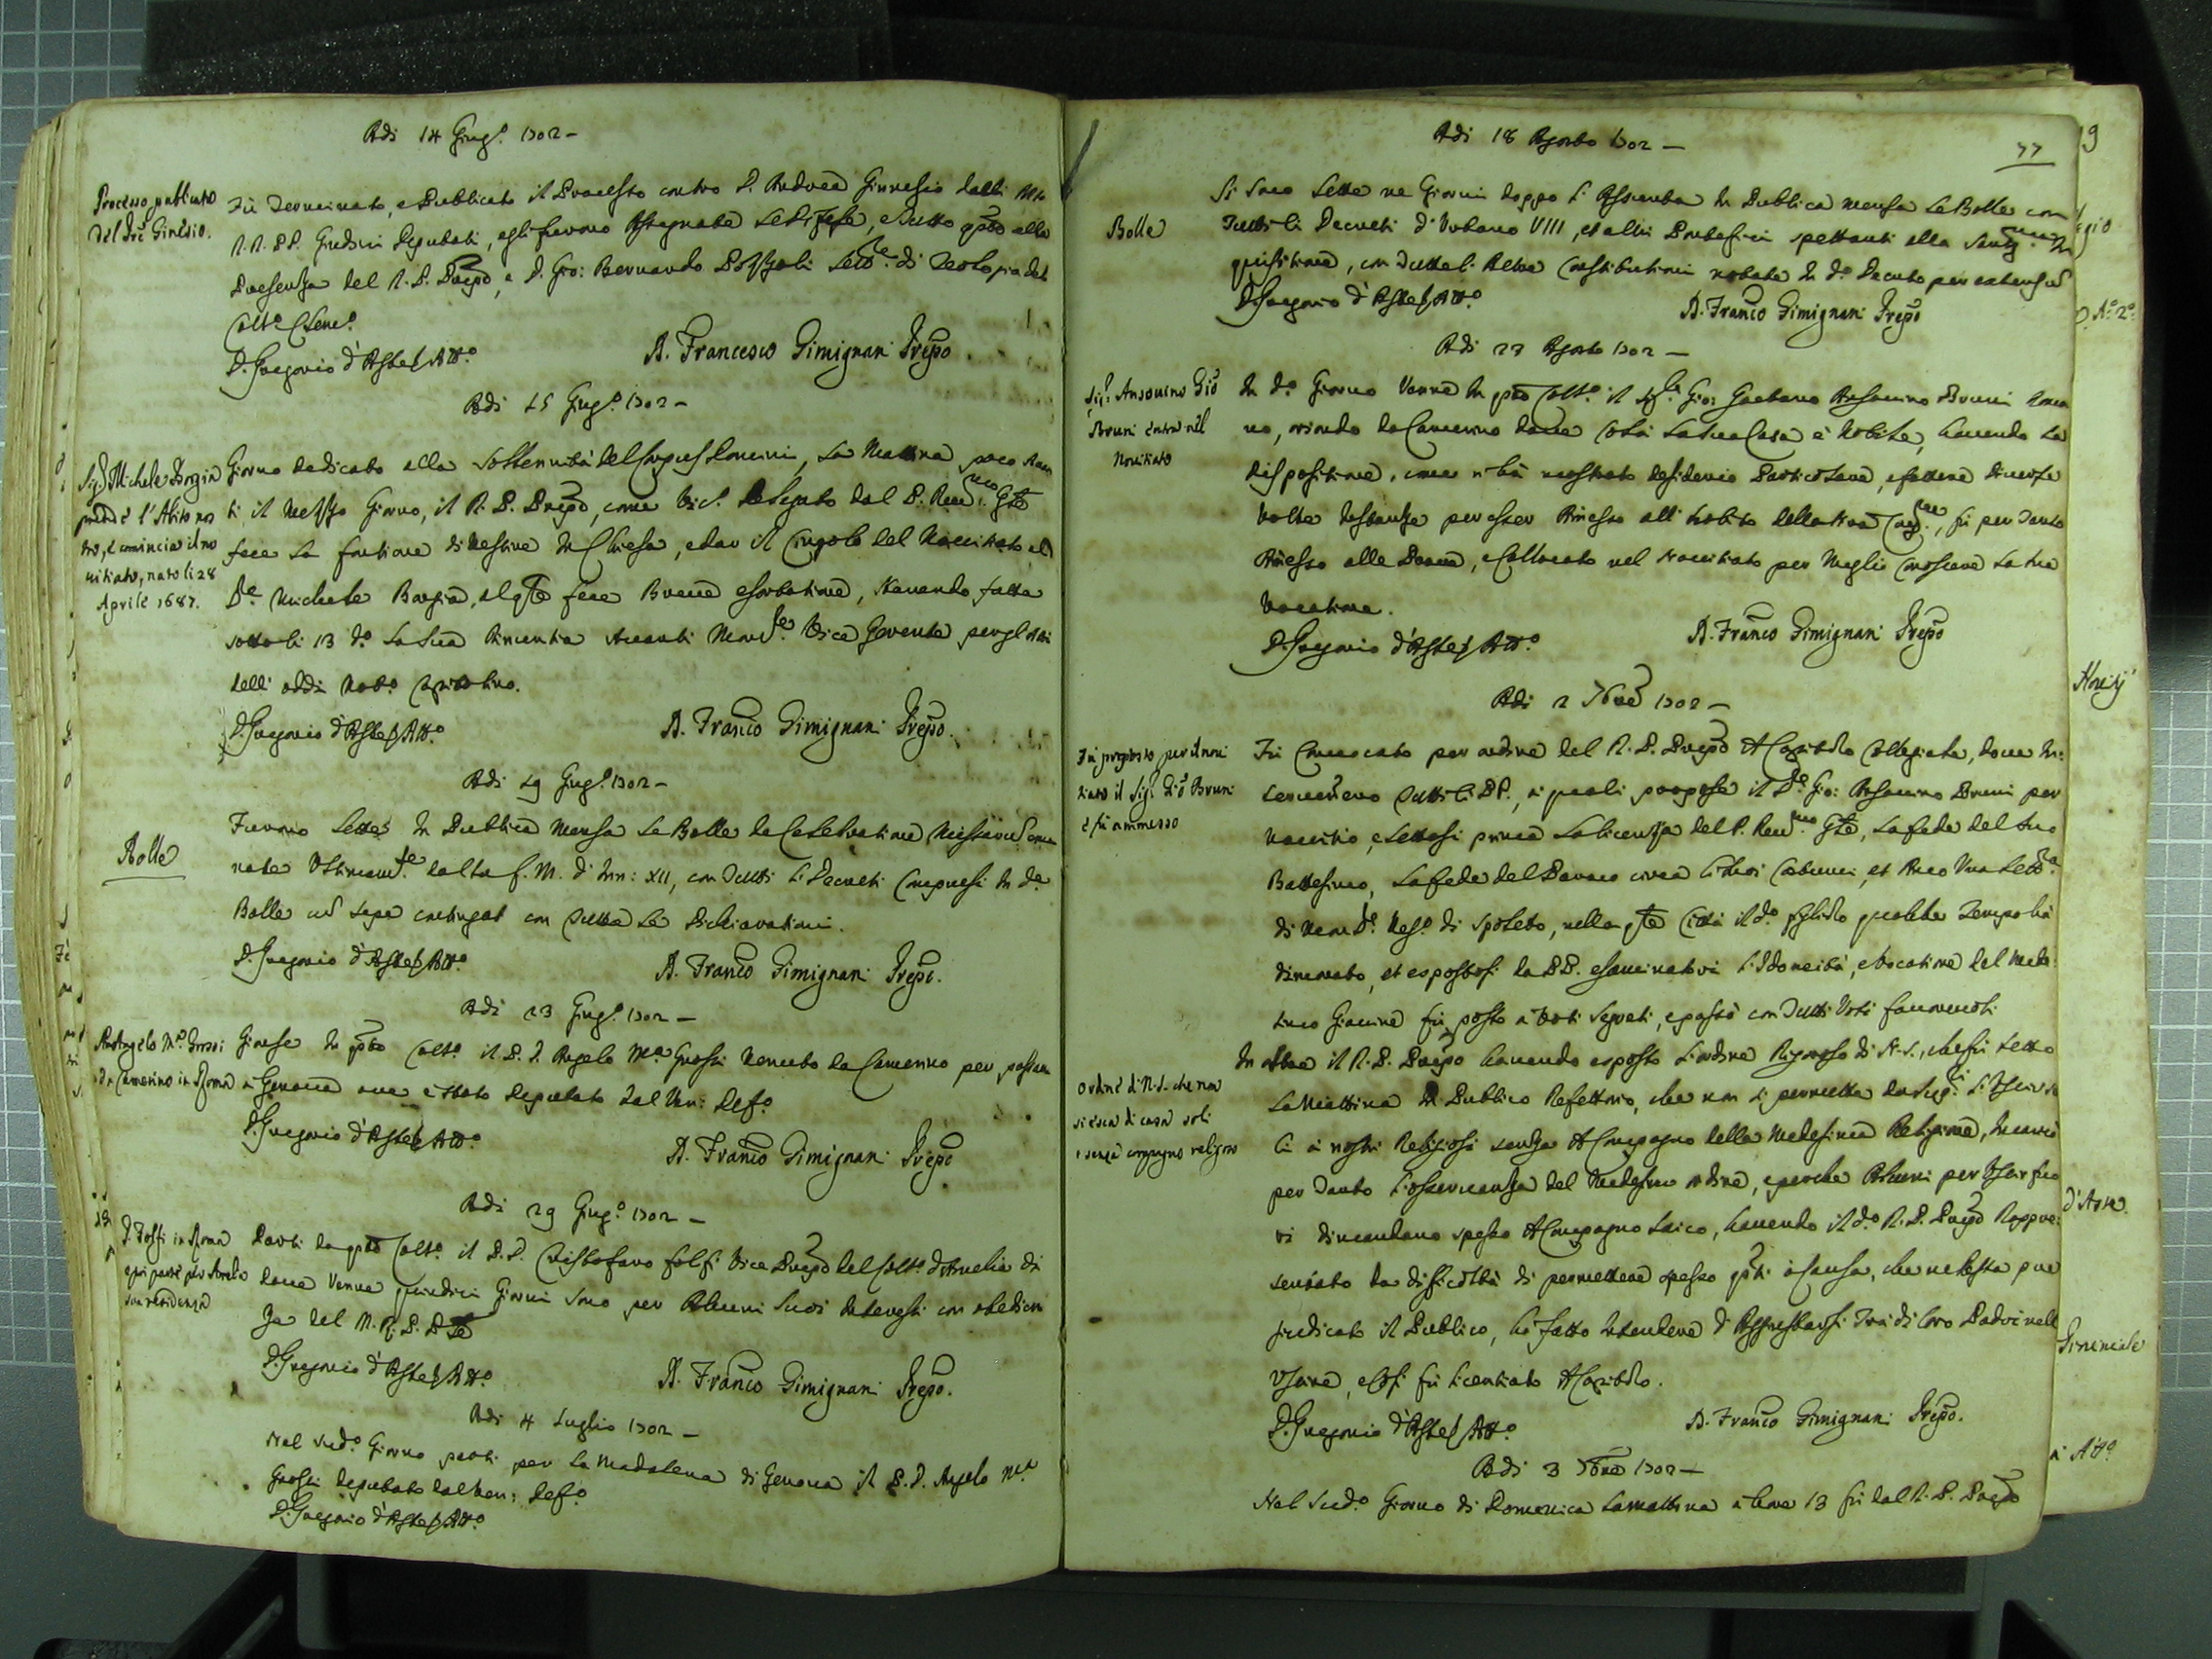 Adi 14 Giug.º 1702 –
Processo publicato
del Pre Ginesio.
Fù Terminato, e Publicato il Processo contro P. Andrea Ginnesio dalli Mto
R.R. PP. Giudici Deputati, e gli furono Assegnate le Difese, e Tutto qsto alla
Presenza del R. P. Prepto, e P. Gio: Bernardo Pozzoli Letre. di Teologia del
Coltº Clemº.
P. Gregorio d'Aste Attº.
A. Francesco Gimignani Prepto.
Adi 15 Giug.º 1702 –
Sigr Michele Borgia
prende l'Abito nos
tro, e comincia il no
vitiato, nato li 28
Aprile 1687.
Giorno dedicato alla Sollennità del Corpus Domini, La Mattina poco avan
ti il Mezzo Giorno, il R. P. Prepto, come Delegato dal P. Revmo Gnle
fece la funtione di Vestire in Chiesa, e dar il Cingolo del Novitiato al
Sr. Michele Borgia, al qle fece Breve esortatione, Havendo fatta
sotto li 13 do. La Sua Rinuntia Avanti Monsre. Vice Gerente per gl'atti
delli oddi Nottº Capitolino.
P. Gregorio d'Aste Attº.
A. Franco Gimignani Prepto.
Adi 19 Giug.º 1702 –
Bolle
Furono Lette in Publica Mensa Le Bolle de Celebratione Missarum
nate Ultimamte. dalla f. M. d'Inn: XII, con Tutti li Decreti Compresi in da.
Bolla con Tutte Le Dichiarationi.
P. Gregorio d'Aste Attº.
A. Franco Gimignani Prepto.
Adi 23 Giug.º 1702 –
P. Angelo Mª Grossi
da Camerino in Roma
Giunse in qsto Coltº il P. D. Angelo Mª Grossi Venuto da Camerino per passare
a Genova ove è stato Deputato dal Ven: Defº.
P. Gregorio d'Aste Attº.
A. Franco Gimignani Prepto
Adi 29 Giug.º 1702 –
P. Folfi in Roma
e poi parte per Amelia
sua residenza
Partì da qsto Coltº il P. D. Cristofaro Folfi Vice Prepto del Coltº d'Amelia di
dove Venne quindici Giorni sono per Alcuni Suoi Interessi con obedien
za del M. R. P. Ple
P. Gregorio d'Aste Attº.
A. Franco Gimignani Prepto.
Adi 4 Luglio 1702 –
Nel sudº. Giorno partì per La Madalena di Genova il P. D. Angelo Mª
Grossi deputato dal Ven: Defº.
P. Gregorio d'Aste Attº.
77
Adi 18 Agosto 1702 –
Bolle
Si sono Lette ne Giorni doppo L'Assunta in Publica mensa Le Bolle con
Tutti li Decreti d'Urbano VIII, et altri Pontefici spettanti alla Santma. In
quisitione, con Tutte l'Altre Constitutioni notate in dº. Decreto per extensum
P. Gregorio d'Aste Attº.
A. Franco Gimignani Prepto
Adi 22 Agosto 1702 –
Sigr. Ansovino Gio
Bruni entra nel
Novitiato
In dº. Giorno Venne in qsto Coltº. il Sigre. Gio: Gaetano Ansovino Bruni Roma
no, oriundo da Camerino dove Colà La sua Casa è Nobile, havendo La
dispositione, come n'hà mostrato desiderio Particolare, e fattene Diverse
Volte Instanze per esser Ammesso all'habito della Nra Congne, fù per Tanto
Amesso alle Prove, e Collocato nel Novitiato per Meglio Conoscere La sua
Vocatione.
P. Gregorio d'Aste Attº.
A. Franco Gimignani Prepto
Adi 2 7bre 1702 –
Fù proposto per il novi
tiato il Sigr. Gio Bruni
e fù ammesso
Fù Convocato per ordine del R. P. Prepto il Capitolo Collegiale, dove In:
tervennero Tutti li PP., a quali propose il Sre. Gio: Ansovino Bruni per
Novitio, e Lettasi prima La licenza del P. Revmo Gnle, La fede del suo
Battesimo, La fede del Paroco circa li suoi Costumi, et Anco Una Lettra.
di Monsre. Vesº. di Spoleto, nella qle Città il dº. figliolo qualche Tempo hà
dimorato, et espostosi da PP. esaminatori L'Idoneità, e Vocatione del Mede:
simo Giovine fù posto a Voti Segreti, e passò con Tutti Voti favorevoli
Ordine di N. S. che non
si esca di casa soli
e senza compagno religioso
In oltre il R. P. Prepto havendo esposto L'ordine Rigoroso di N. S., che fù Letto
La Mattina in Publico Refettorio, che non si permetta da Supri. L'Uscir so
li a nostri Religiosi senza il Compagno della Medesima Religione, Incaricò
per Tanto L'osservanza del Medesimo ordine, e perche Alcuni per Uscir fuo
ri dimandano spesso il Compagno Laico, havendo il dº. R. P. Prepto Rappre:
sentato La difficoltà di permettere spesso qsta Usanza, che ne resta pre
giudicato il Publico, hà fatto Intendere d'Aggiustarsi Trà di loro Padri nell
Uscire, e Così fù licentiato il Capitolo.
P. Gregorio d'Aste Attº.
A. Franco Gimignani Prepto.
Adi 3 7bre 1702 –
Nel Sudº. Giorno di Domenica La mattina a hore 13 fù dal R. P. Prepto